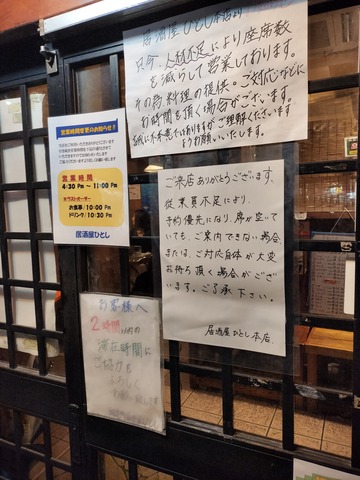 居酒屋ひとし本店より
只今、人員不足により座席数
を減らして営業しております。
その為、料理の提供。ご対応などに
お時間を頂く場合がございます。
誠に不本意ではありますがご理解くださいます
ようお願いいたします。
営業時間変更のお知らせ!!
営業時間
4:30 PM ~ 11:00 PM
※ラストオーダー
お食事/10:00 PM
ドリンク/10:30 PM
居酒屋ひとし
ご来店ありがとうございます。
従業員不足により、
予約優先になり、席が空いて
いても、ご案内できない場合、
または、ご対応自体が大変
お待ち頂く場合がござい
ます。ご了承下さい。
居酒屋ひとし本店
お客様へ
2時間以内の
滞在時間に
ご協力を
よろしく